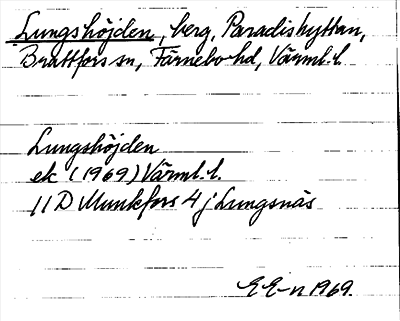 Lungshöjden, berg, Paradishyttan,
Brattfors sn, Färnebo hd, Värml. l.
Lungshöjden
ek (1969) Värml. l.
11 D Munkfors 4 j Lungsnäs
E E-n 1969.